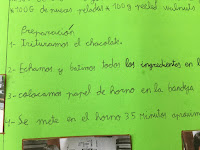 100G de nueces peladas * 100g peeled walnuts
Preparación
1- Trituramos el chocolate.
2- Echamos y batimos todos los ingredientes en l
3- colocamos papel de horno en la bandeja
4- Se mete en el horno 35 minutos aproxim